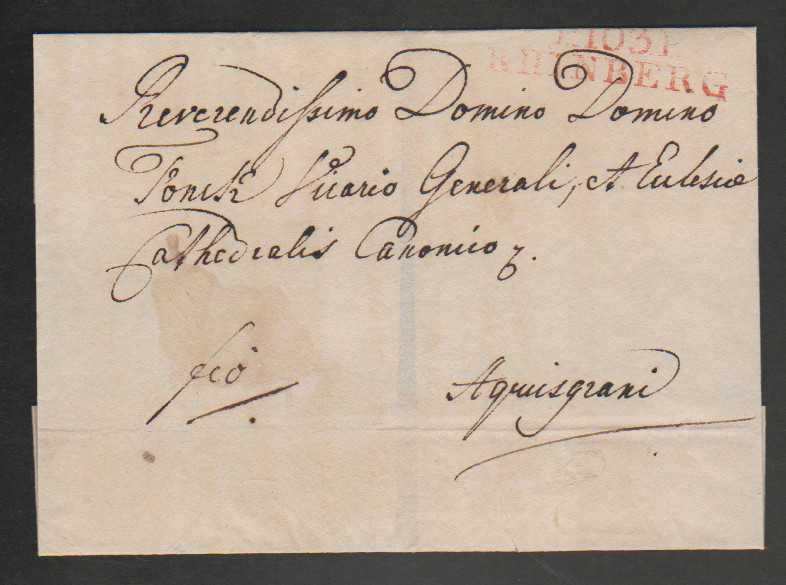 P.103.P.
RHINBERG
Reverendissimo Domino Domino
Fonck Vicario Generali, et Eclesiæ
Cathedralis Canonico
fco
Aquisgrani